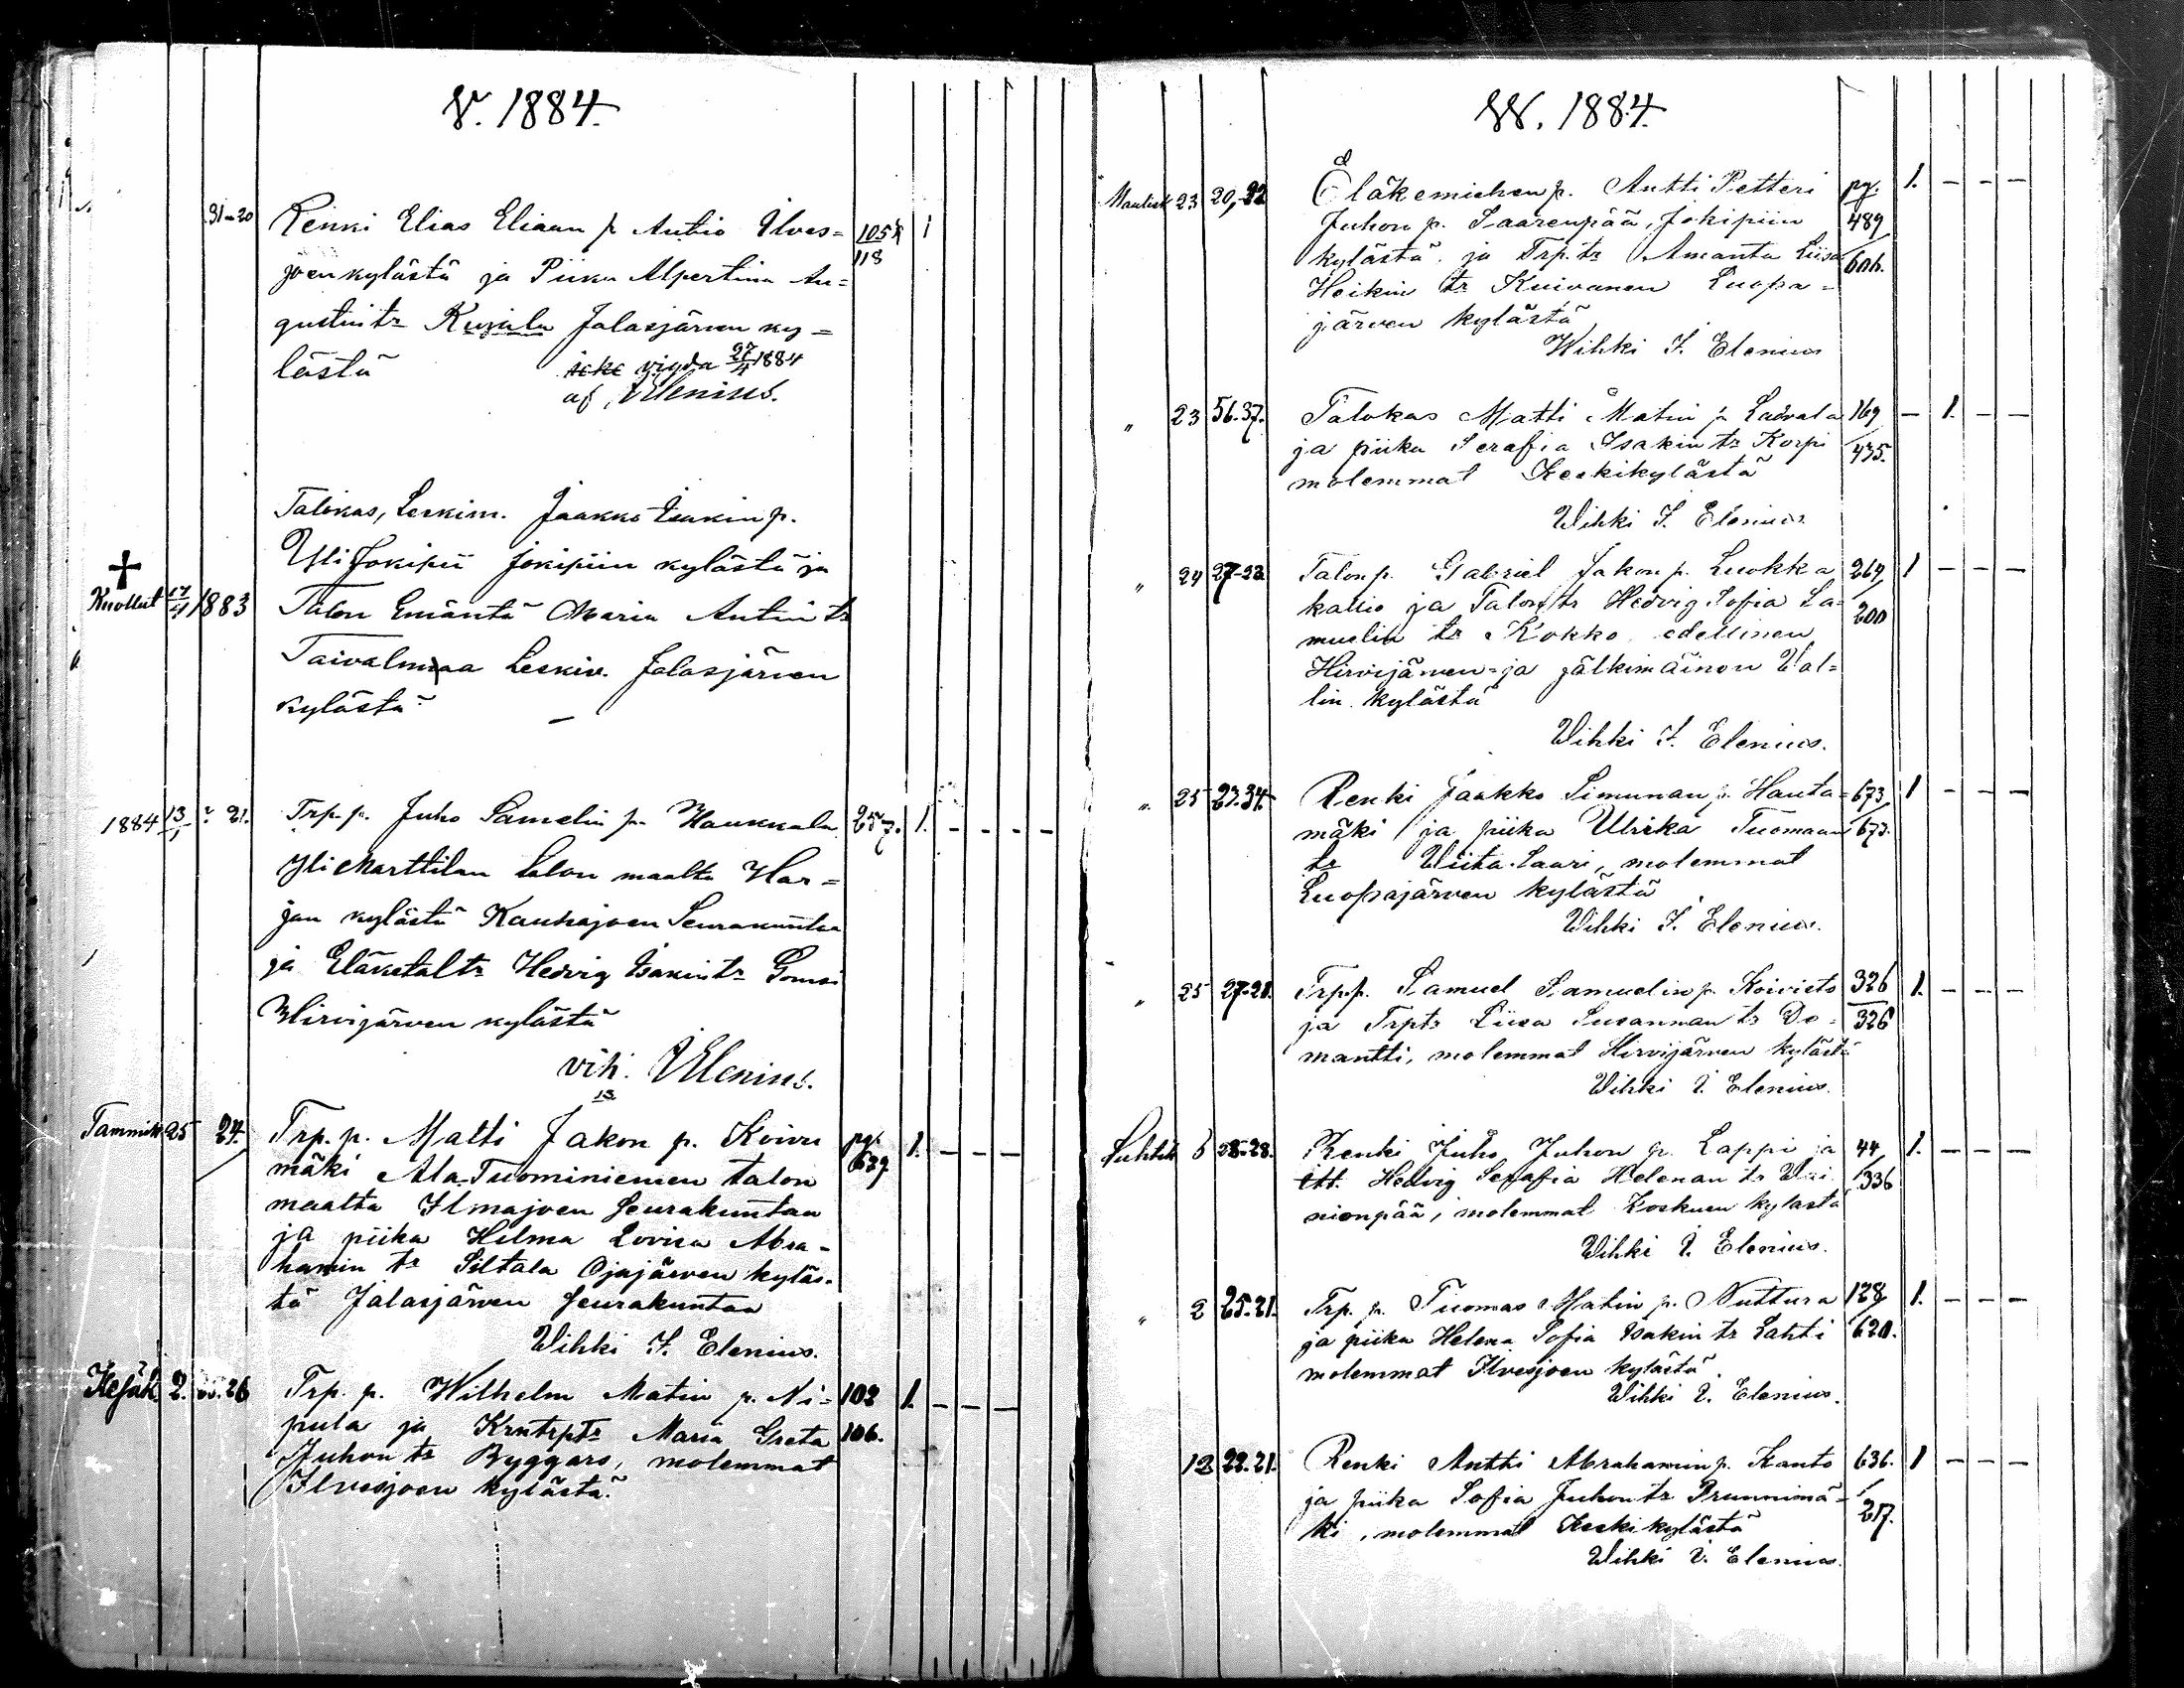 V. 1884.
31-20 Renki Elias Eliaan p Antio Ilves= 105½ 1
118
joen kylästä ja Piika Alpertina Au=
gustin tr Kujala Jalasjärven ky=
lästä icke vigda 27/4 1884
af Elenius.
Talokas, Leskim. Jaakko Isakin p.
Yli Jokipii Jokipiin kylästä ja
Kuollut 17/4 1883 Talon Emäntä Maria Antin tr
Taivalmaa Leskiv. Jalasjärven
kylästä
1884 13/1 21. Trp. p. Juho Samelin p. Haukkala 257. 1. - - - -
Yli Marttilan talon maalta Har=
jan kylästä Kauhajoen Seurakuntaa
ja Eläketal tr Hedvig Isakin tr
Hirvijärven kylästä
vih. Elenius.
13
Tammik 25 24. Trp. p. Matti Jakon p. Koivu pg. 1. - - -
mäki Ala-Tuominiemen talon 629
maalta Ilmajoen Seurakuntaa
ja piika Helma Lovisa Abra-
hamin tr Siltala Ojajärven kyläs-
tä Jalasjärven Seurakuntaa
Wihki I. Elenius.
Kesäk. 2. 26 Trp. p. Wilhelm Matin p. Ni= 102 1. - - -
pula ja Krntrptr Maria Greta 106.
Juhon tr Byggars, molemmat
Ilvesjoen kylästä.
W. 1884.
Maalisk 23 20,-22 Eläkemiehen p. Antti Petteri pg. 1. - - -
Juhon p. Saarenpää, Jokipiin 489
kylästä ja Trp. tr Amanta Liisa 606.
Heikin tr Kuivanen Luopa=
järven kylästä
Wihki I. Elenius
" 23 56.37. Talokas Matti Matin p. Latvala 169 - 1. - -
ja piika Serafia Isakin tr Korpi 435.
molemmat Keskikylästä
Wihki I. Elenius.
" 24 27-23 Talon p. Gabriel Jakon p. Luokka 264, 1 - - -
kallio ja Talon tr Hedvig Sofia Sa= 200
muelin tr Kokko edellinen
Hirvijärven- ja jälkimäinen Val=
lin kylästä
Wihki I. Elenius.
" 25 23.34. Renki Jaakko Simunan p. Hauta= 673, 1 - - -
mäki ja piika Ulrika Tuomaan 673.
tr Viita-Saari, molemmat
Luopajärven kylästä
Wihki I. Elenius.
" 25 27.21. Trp. p. Samuel Samuelin p. Koivisto 326 1. - - -
ja Trptr Liisa Susannan tr Do= 326
mantti, molemmat Hirvijärven kylästä
Wihki I. Elenius.
Huhtik 6 28. Renki Juho Juhon p. Lappi ja 44 1. - - -
itt. Hedvig Serafia Helenan tr Vai 336
nionpää, molemmat Koskuen kylästä
Wihki I. Elenius.
" 2 25.21. Trp. p. Tuomas Matin p. Nuttura 128, 1. - - -
ja piika Helena Sofia Isakin tr Lahti 620.
molemmat Ilvesjoen kylästä
Wihki I. Elenius.
12 22.21. Renki Antti Abrahamin p. Kanto 636. 1 - - -
ja piika Sofia Juhon tr Prunnimä-
ki, molemmat Keskikylästä 217.
Wihki I. Elenius.